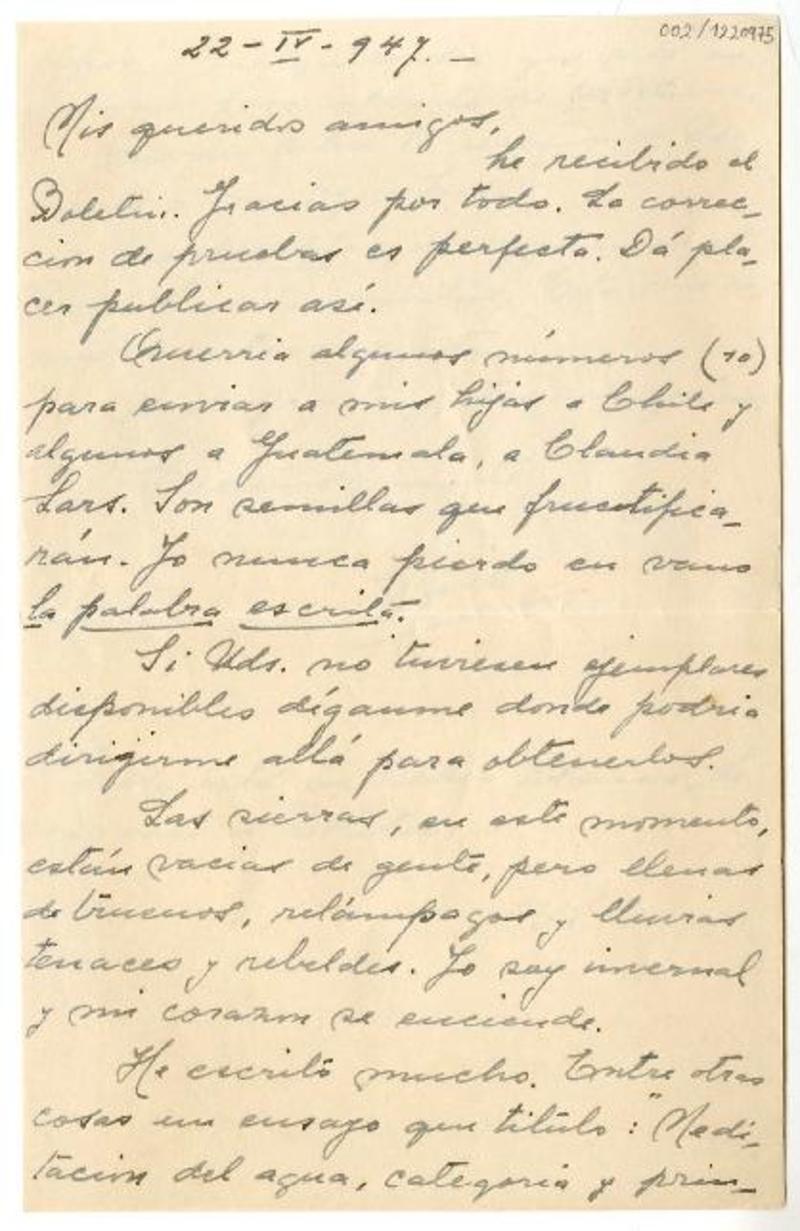 002/1220975
22-IV-947.-
Mis queridos amigos,
he recibido el
Boletin. Gracias por todo. La correc-
cion de pruebas es perfecta. Dá pla-
cer publicar así.
Querria algunos números (10)
para enviar a mis hijas a Chile y
algunos a Guatemala, a Claudia
Lars. Son semillas que fructifica-
rán. Yo nunca pierdo en vano
la palabra escrita.
Si Uds. no tuviesen ejemplares
disponibles díganme donde podria
dirigirme allá para obtenerlos.
Las sierras, en este momento,
están vacias de gente, pero llenas
de truenos, relámpagos y lluvias
tenaces y rebeldes. Yo soy invernal
y mi corazon se enciende.
He escrito mucho. Entre otras
cosas un ensayo que titulo: "Medi-
tacion del agua, categoria y prin-